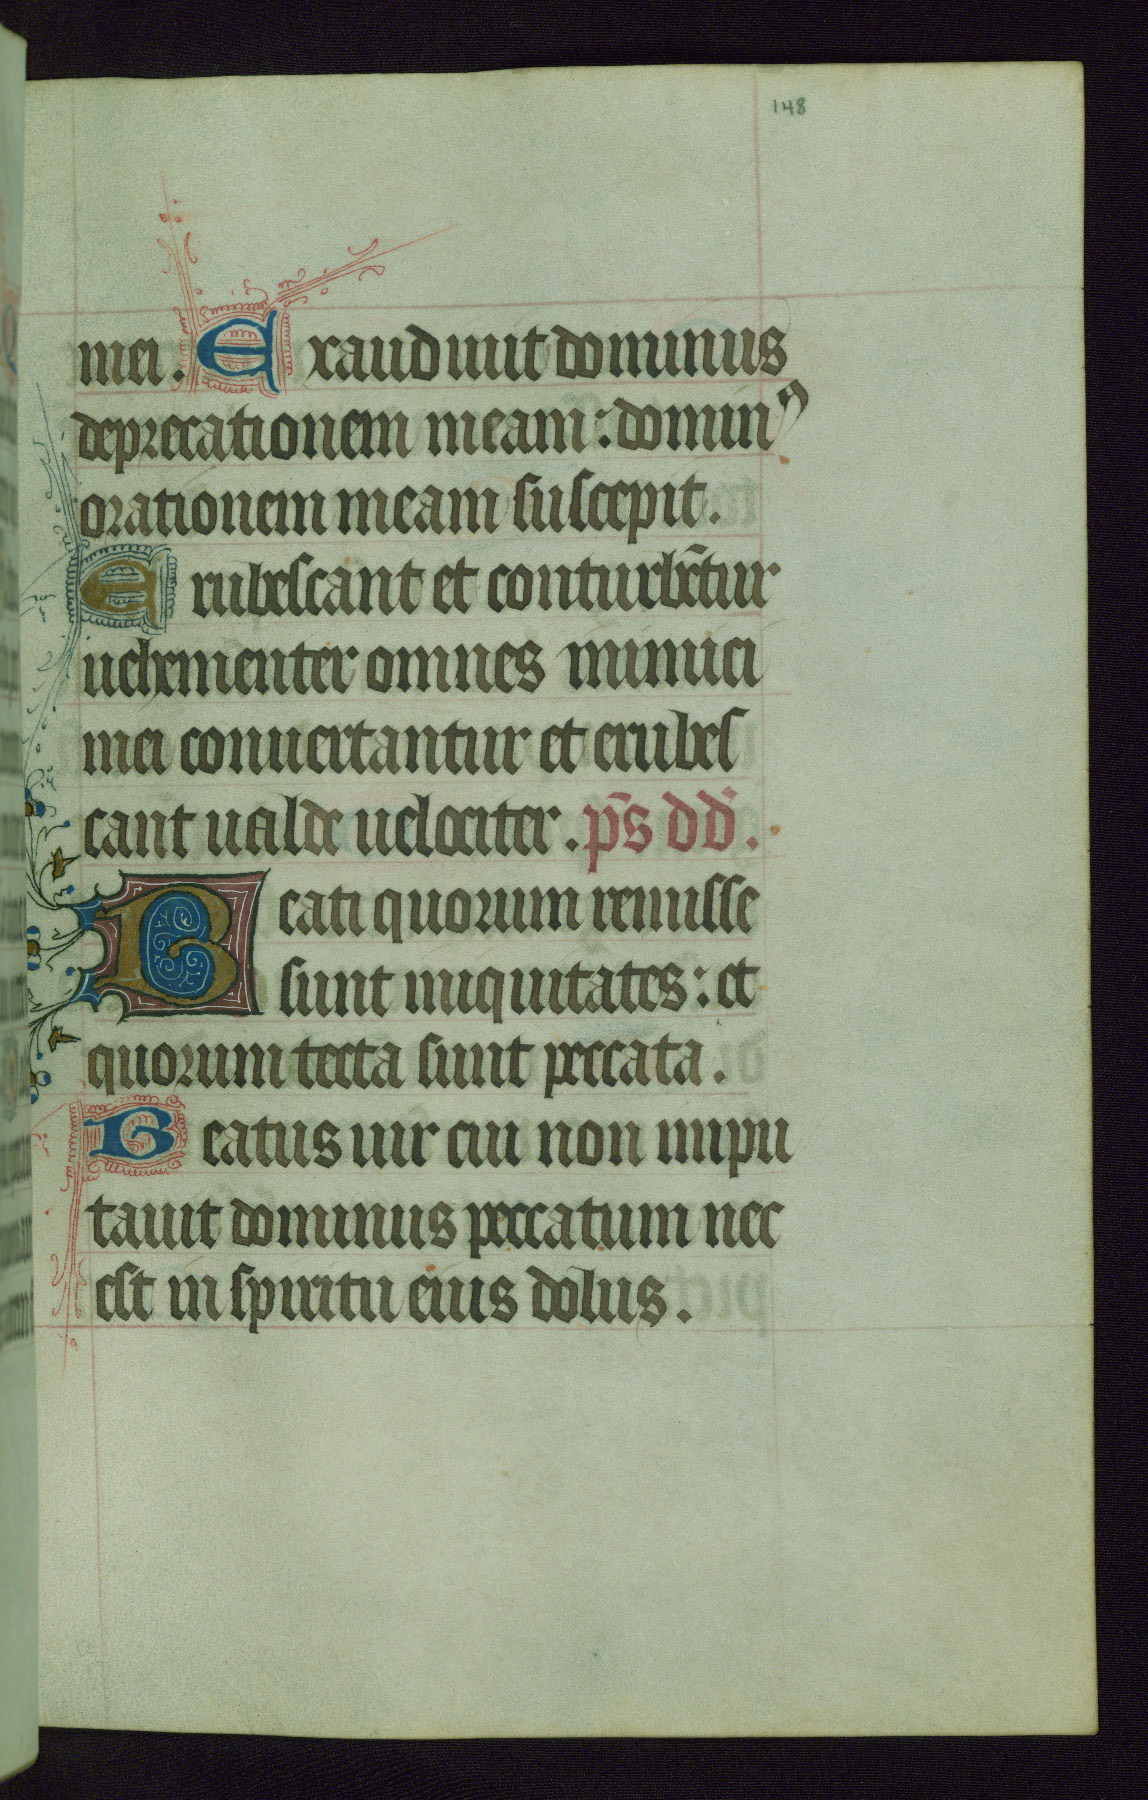 148
mei. Exaudiuit dominus
deprecationem meam: dominꝰ
orationem meam suscepit.
Erubescant et conturbētur
uehementer omnes inimici
mei conuertantur et erubes
cant ualde uelociter. p̄s dd̄.
Beati quorum remisse
sunt iniquitates: et
quorum tecta sunt peccata.
Beatus uir cui non impu
tauit dominus peccatum nec
est in spiritu eius dolus.